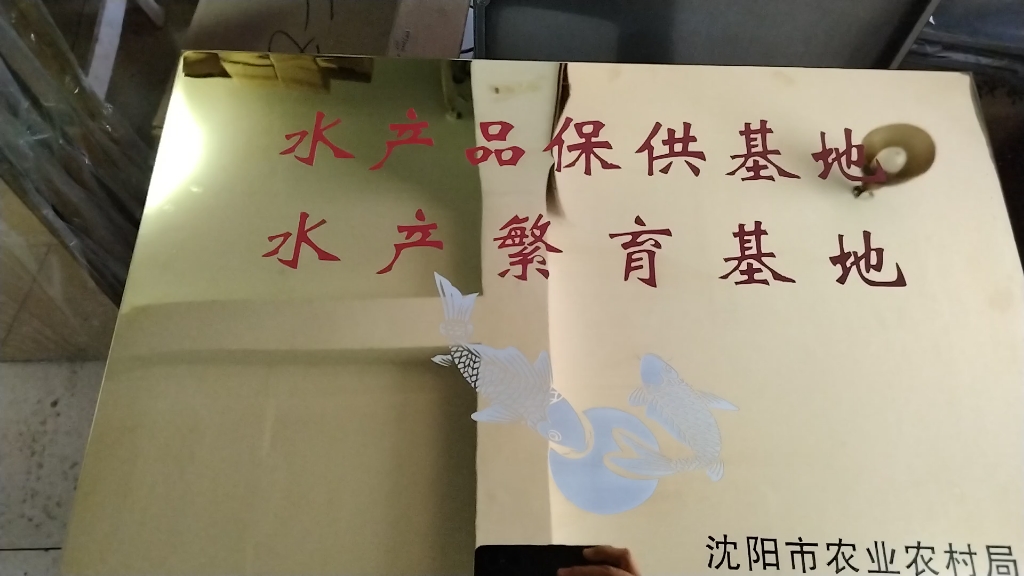 水产品保供基地
水产繁育基地
沈阳市农业农村局